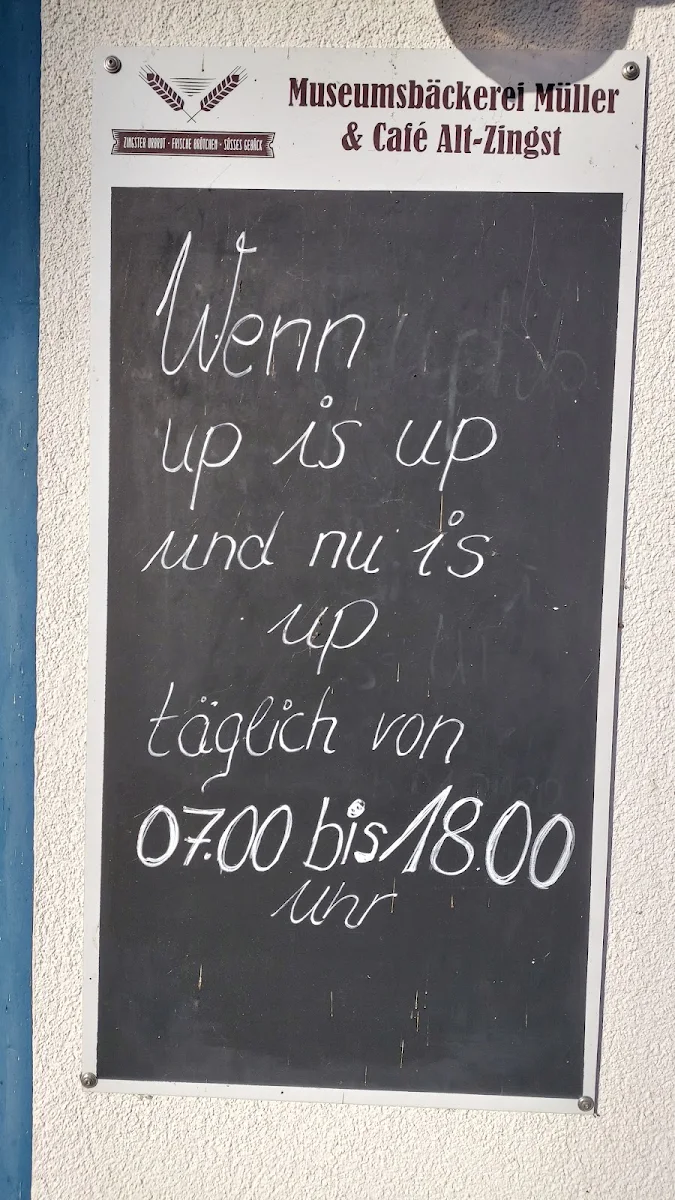 Museumsbäckerei Müller
& Café Alt-Zingst
ZINGSTER URBROT · FRISCHE BRÖTCHEN · SÜSSES GEBÄCK
Wenn
up is up
und nu is
up
täglich von
07.00 bis 18.00
Uhr